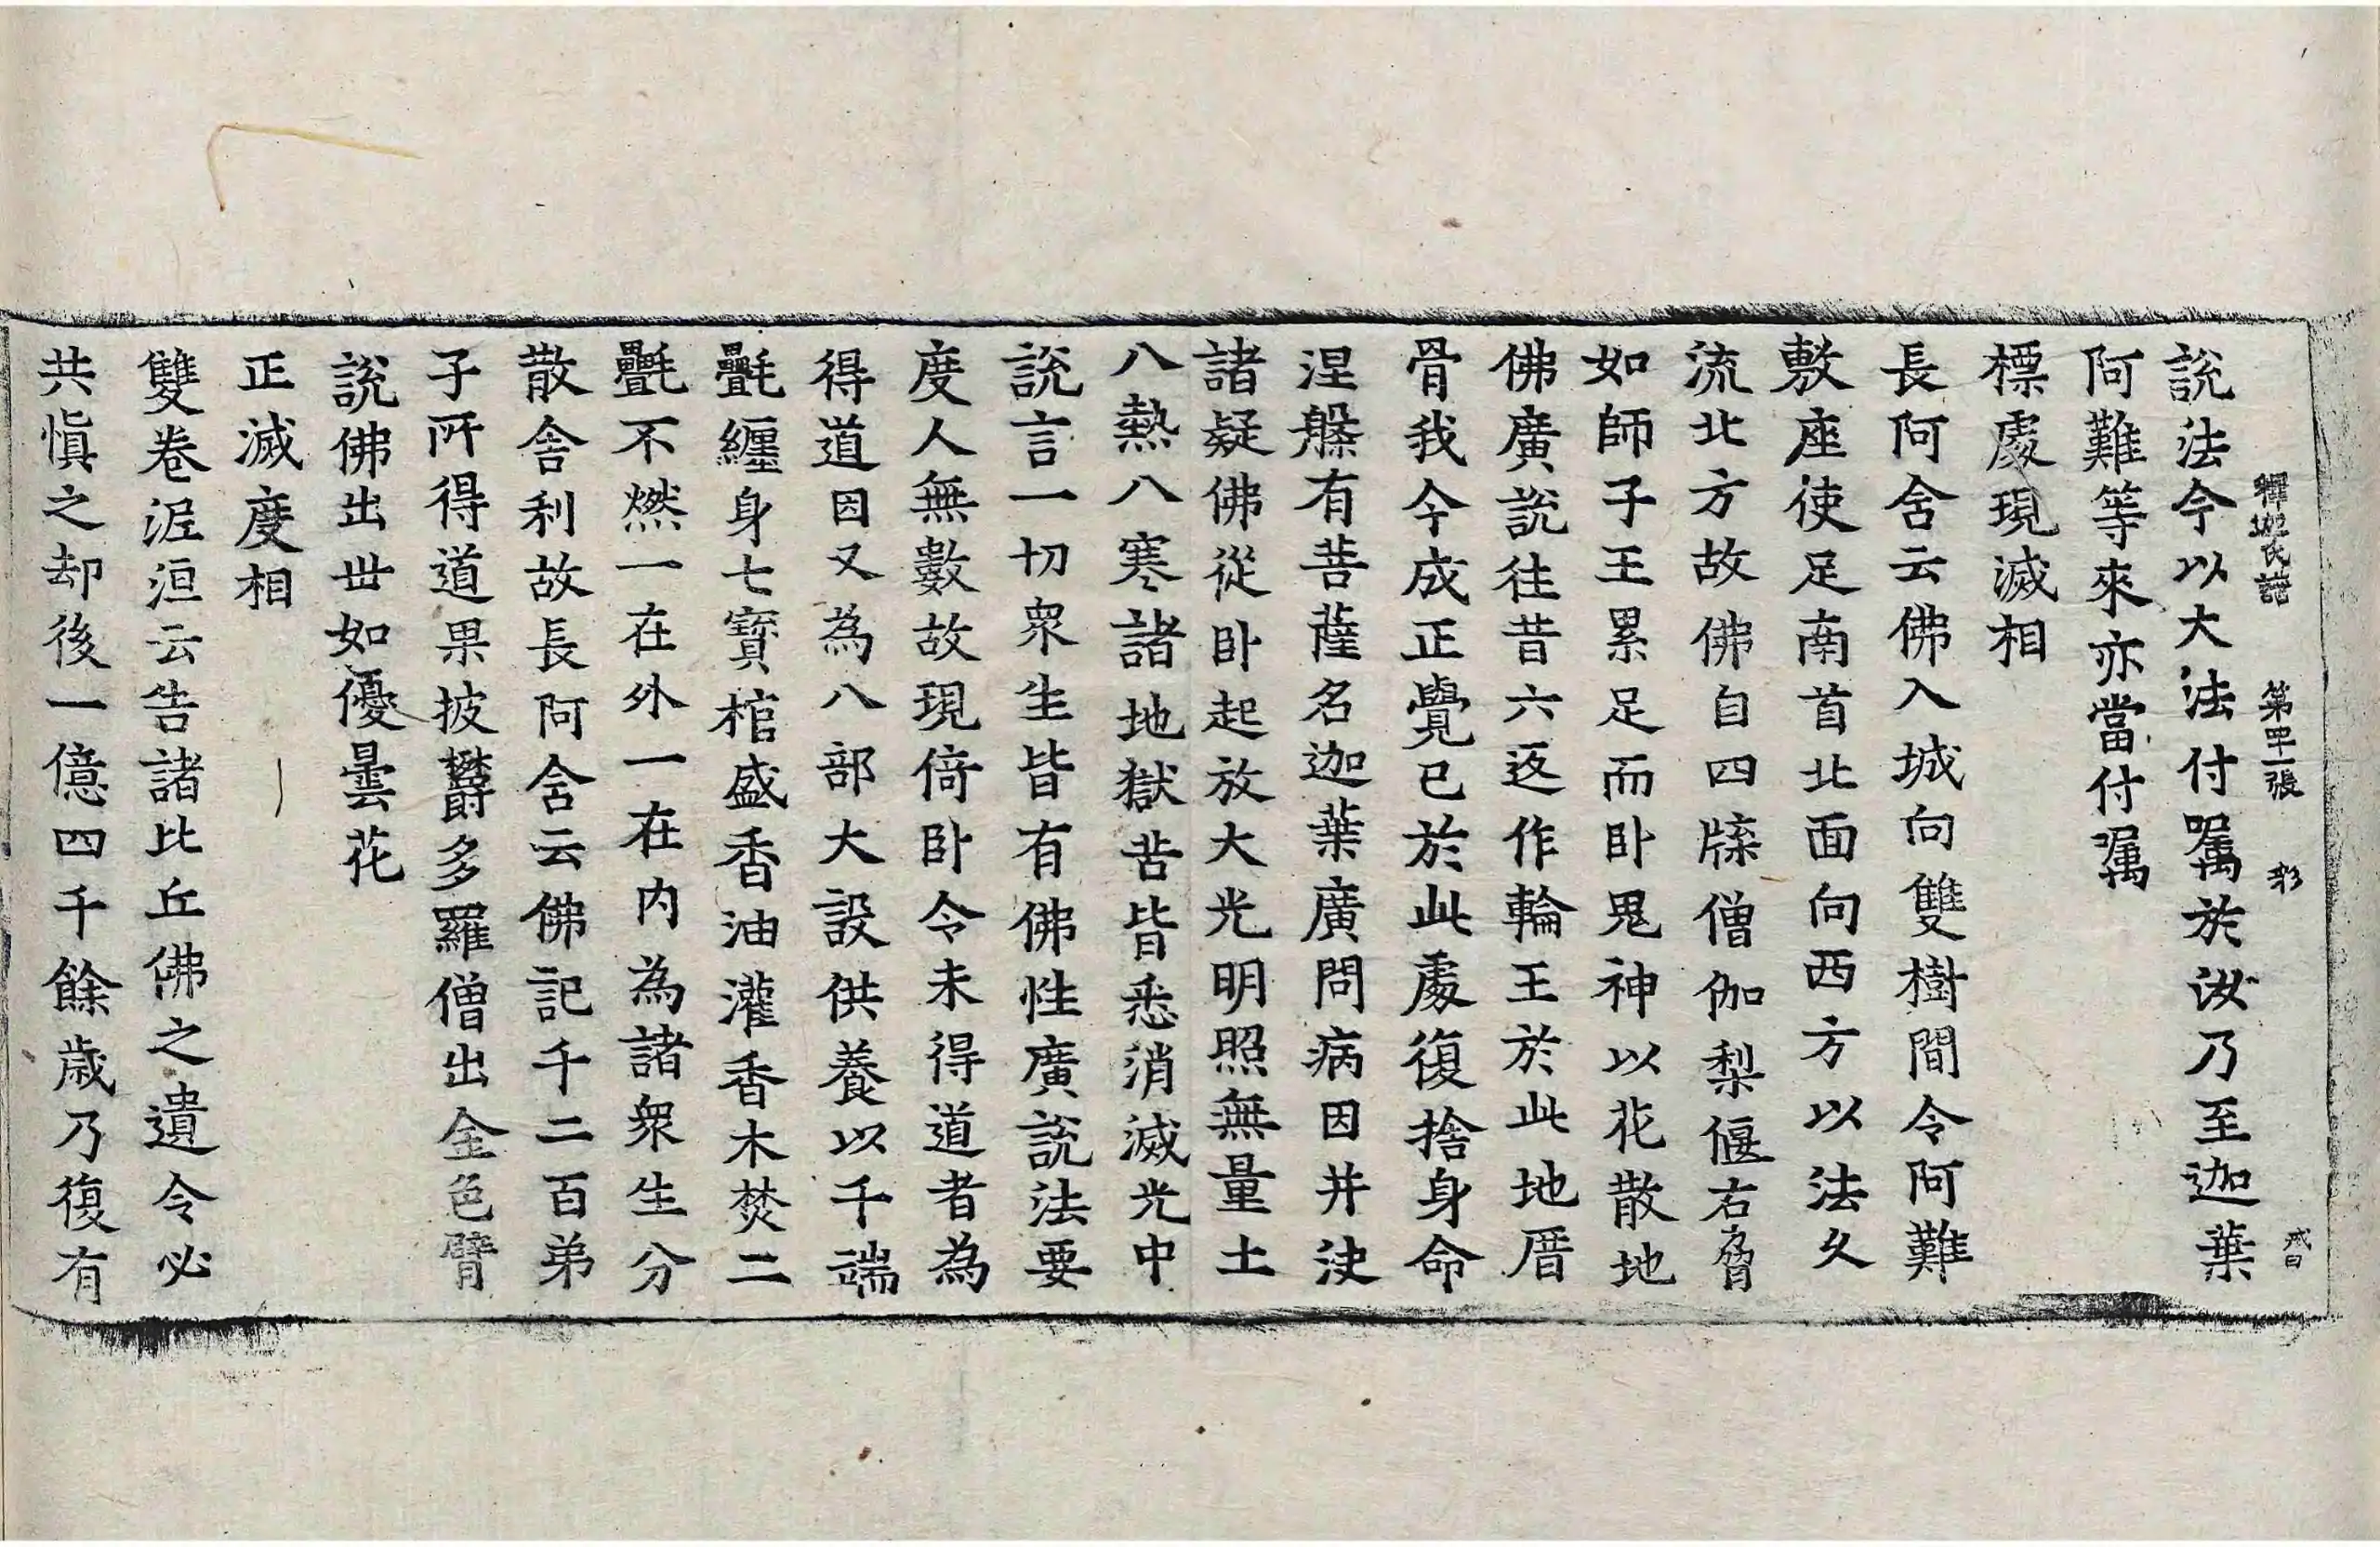 釋迦氏譜 第四十一張 戒因
説法今以大法付囑於汝乃至迦葉
阿難等來亦當付囑
標處現滅相
長阿舍云佛入城向雙樹間令阿難
敷座使足南首北面向西方以法久
流北方故佛自四牒僧伽梨偃右脅
如師子王累足而卧鬼神以花散地
佛廣説往昔六返作輪王於此地厝
骨我今成正覺已於此處復捨身命
涅槃有菩薩名迦葉廣問病因并決
諸疑佛從卧起放大光明照無量土
八熱八寒諸地獄苦皆悉消滅光中
説言一切衆生皆有佛性廣説法要
度人無數故現倚卧令未得道者為
得道因又為八部大設供養以千端
㲲纏身七寳棺盛香油灌香木焚二
㲲不燃一在外一在内為諸衆生分
散舎利故長阿舍云佛記千二百弟
子所得道果披欝多羅僧出金色臂
説佛出世如優曇花
正滅度相
雙卷泥洹云告諸比丘佛之遺令必
共慎之却後一億四千餘歳乃復有